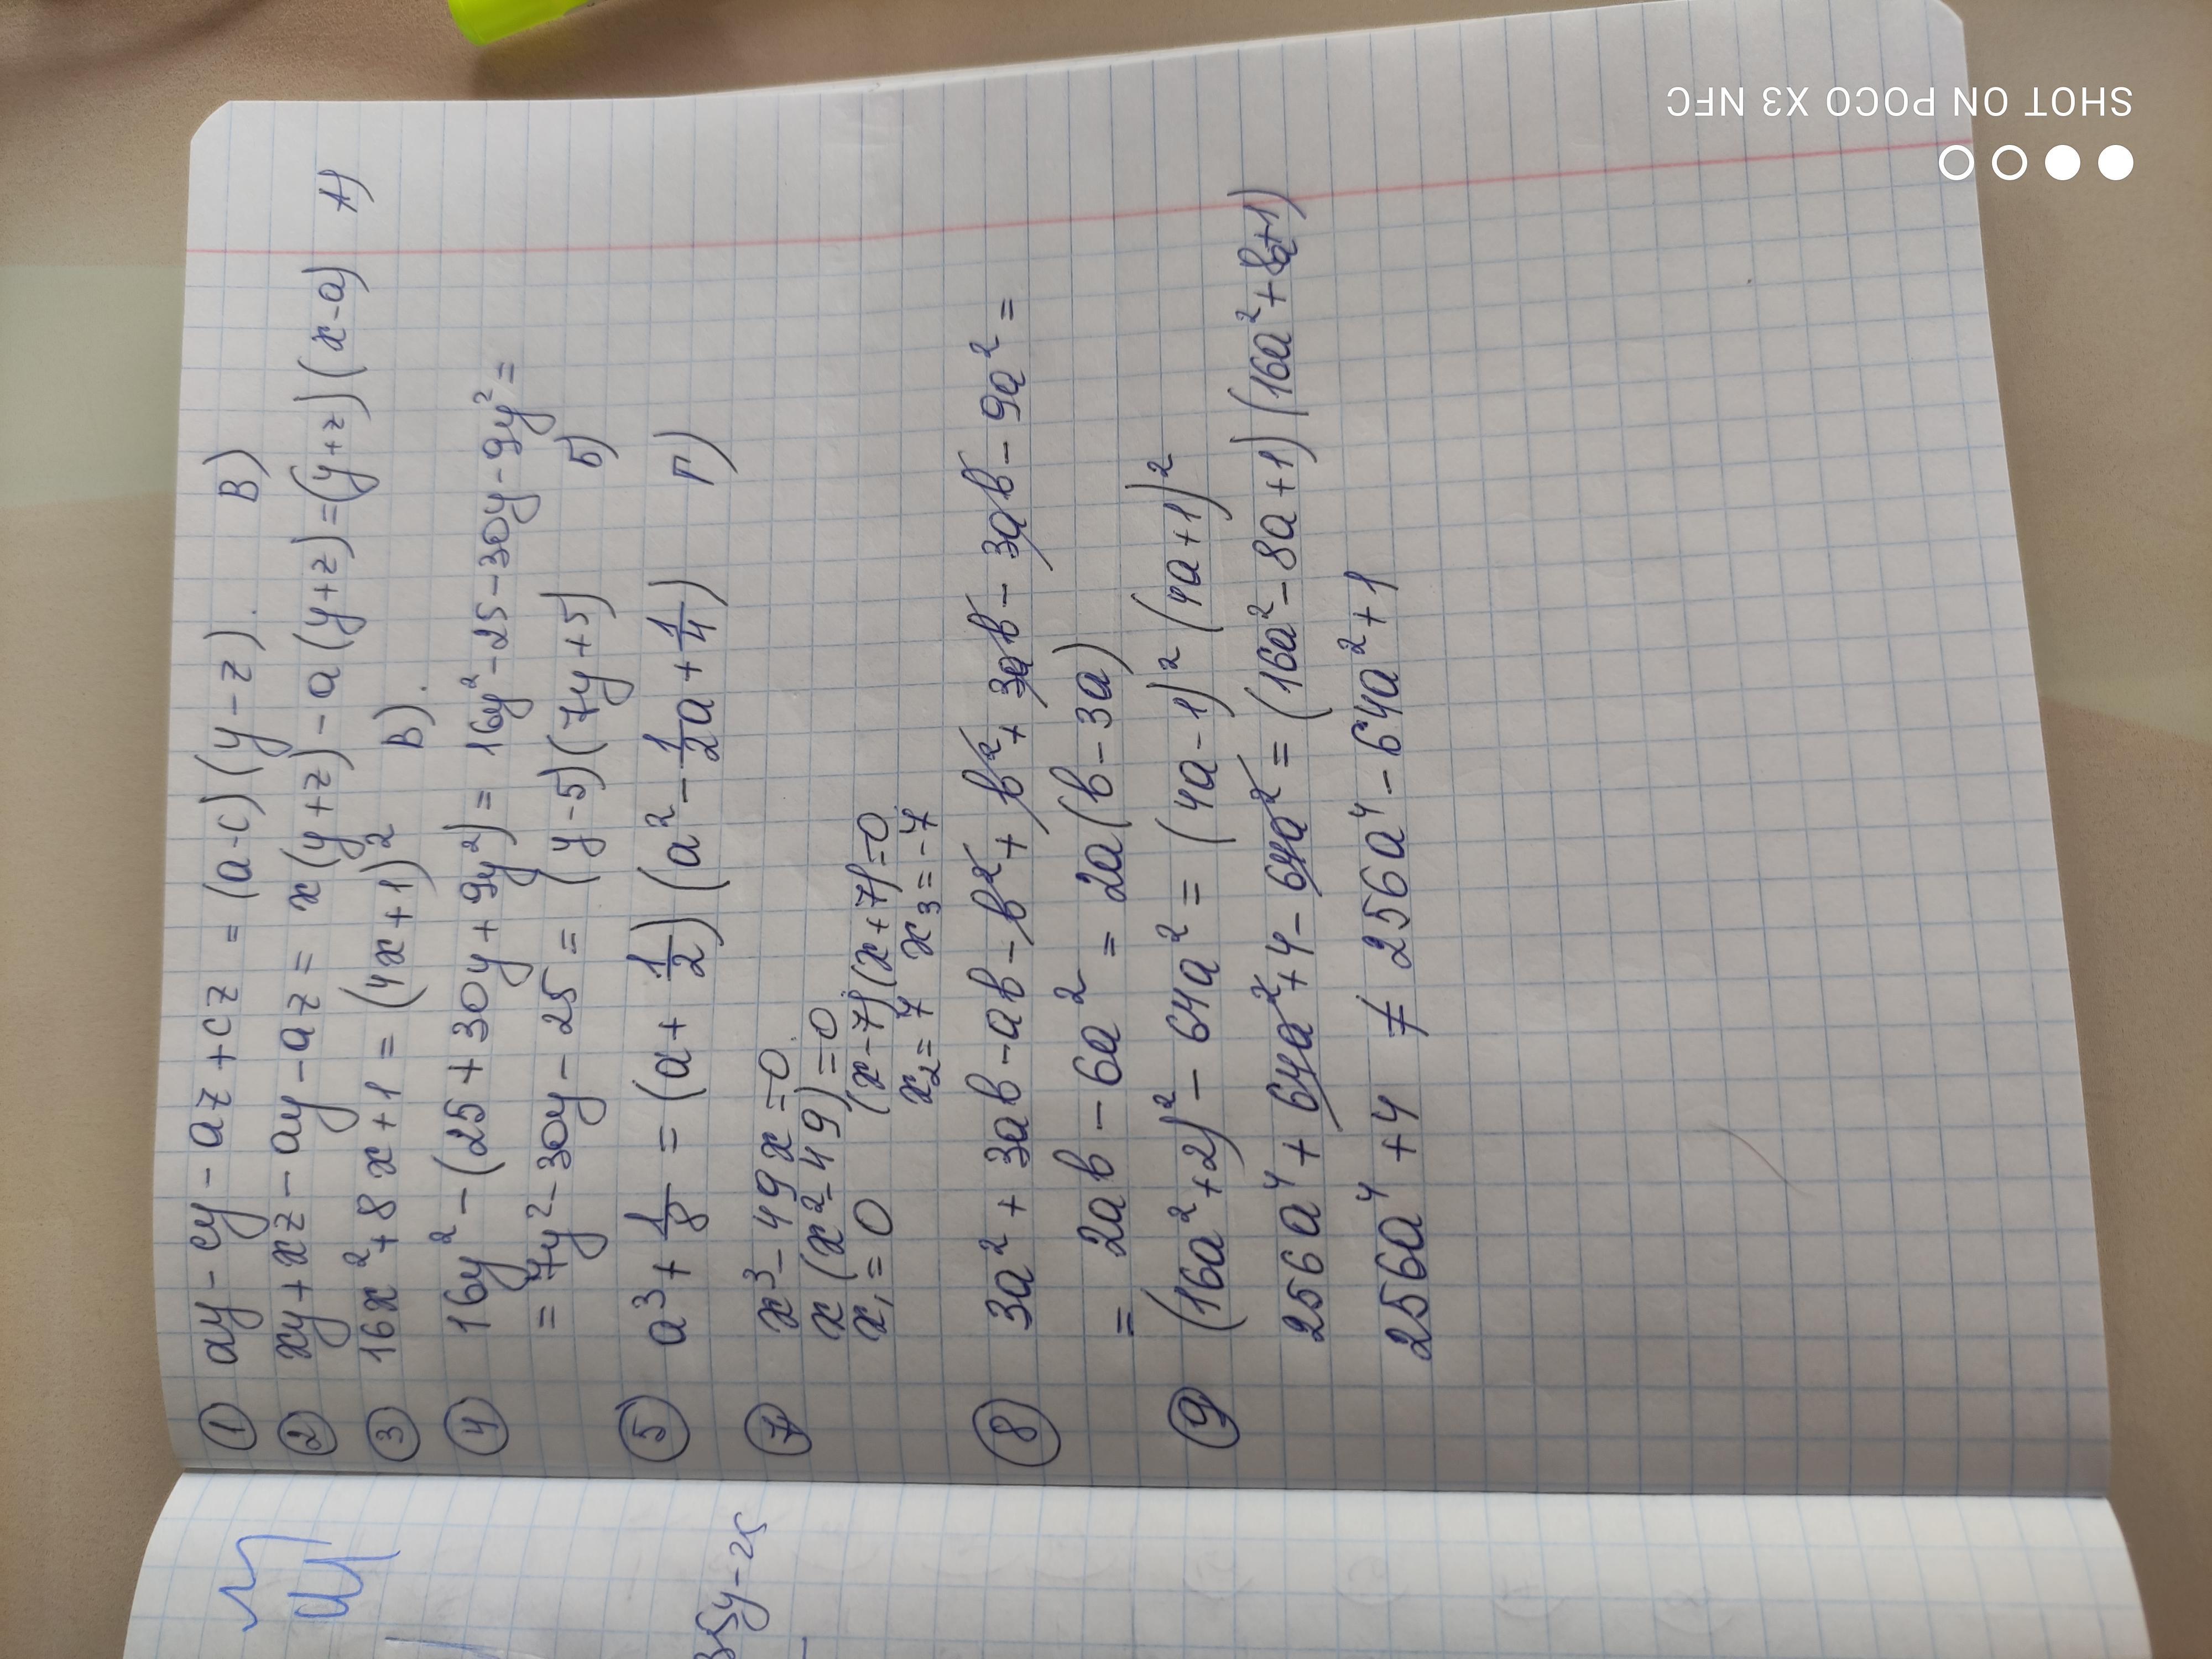 ① ay - cy - az + cz = (a-c)(y-z). В)
② xy + xz - ay - az = x(y+z) - a(y+z) = (y+z)(x-a) А)
③ 16x² + 8x + 1 = (4x+1)² В).
④ 16y² - (25 + 30y + 9y²) = 16y² - 25 - 30y - 9y² =
= 7y² - 30y - 25 = (y-5)(7y+5) Б)
⑤ a³ + 1/8 = (a + 1/2)(a² - 1/2a + 1/4) Г)
⑦ x³ - 49x = 0.
x(x² - 49) = 0
x₁ = 0 (x-7)(x+7) = 0
x₂ = 7 x₃ = -7
⑧ 3a² + 3ab - ab - b² + b² + 3ab - 3ab - 9a² =
= 2ab - 6a² = 2a(b-3a)
⑨ (16a²+2)² - 64a² = (4a-1)² (4a+1)²
256a⁴ + 64a² + 4 - 64a² = (16a² - 8a + 1)(16a² + 8a + 1)
256a⁴ + 4 ≠ 256a⁴ - 64a² + 1
35y - 25
SHOT ON POCO X3 NFC